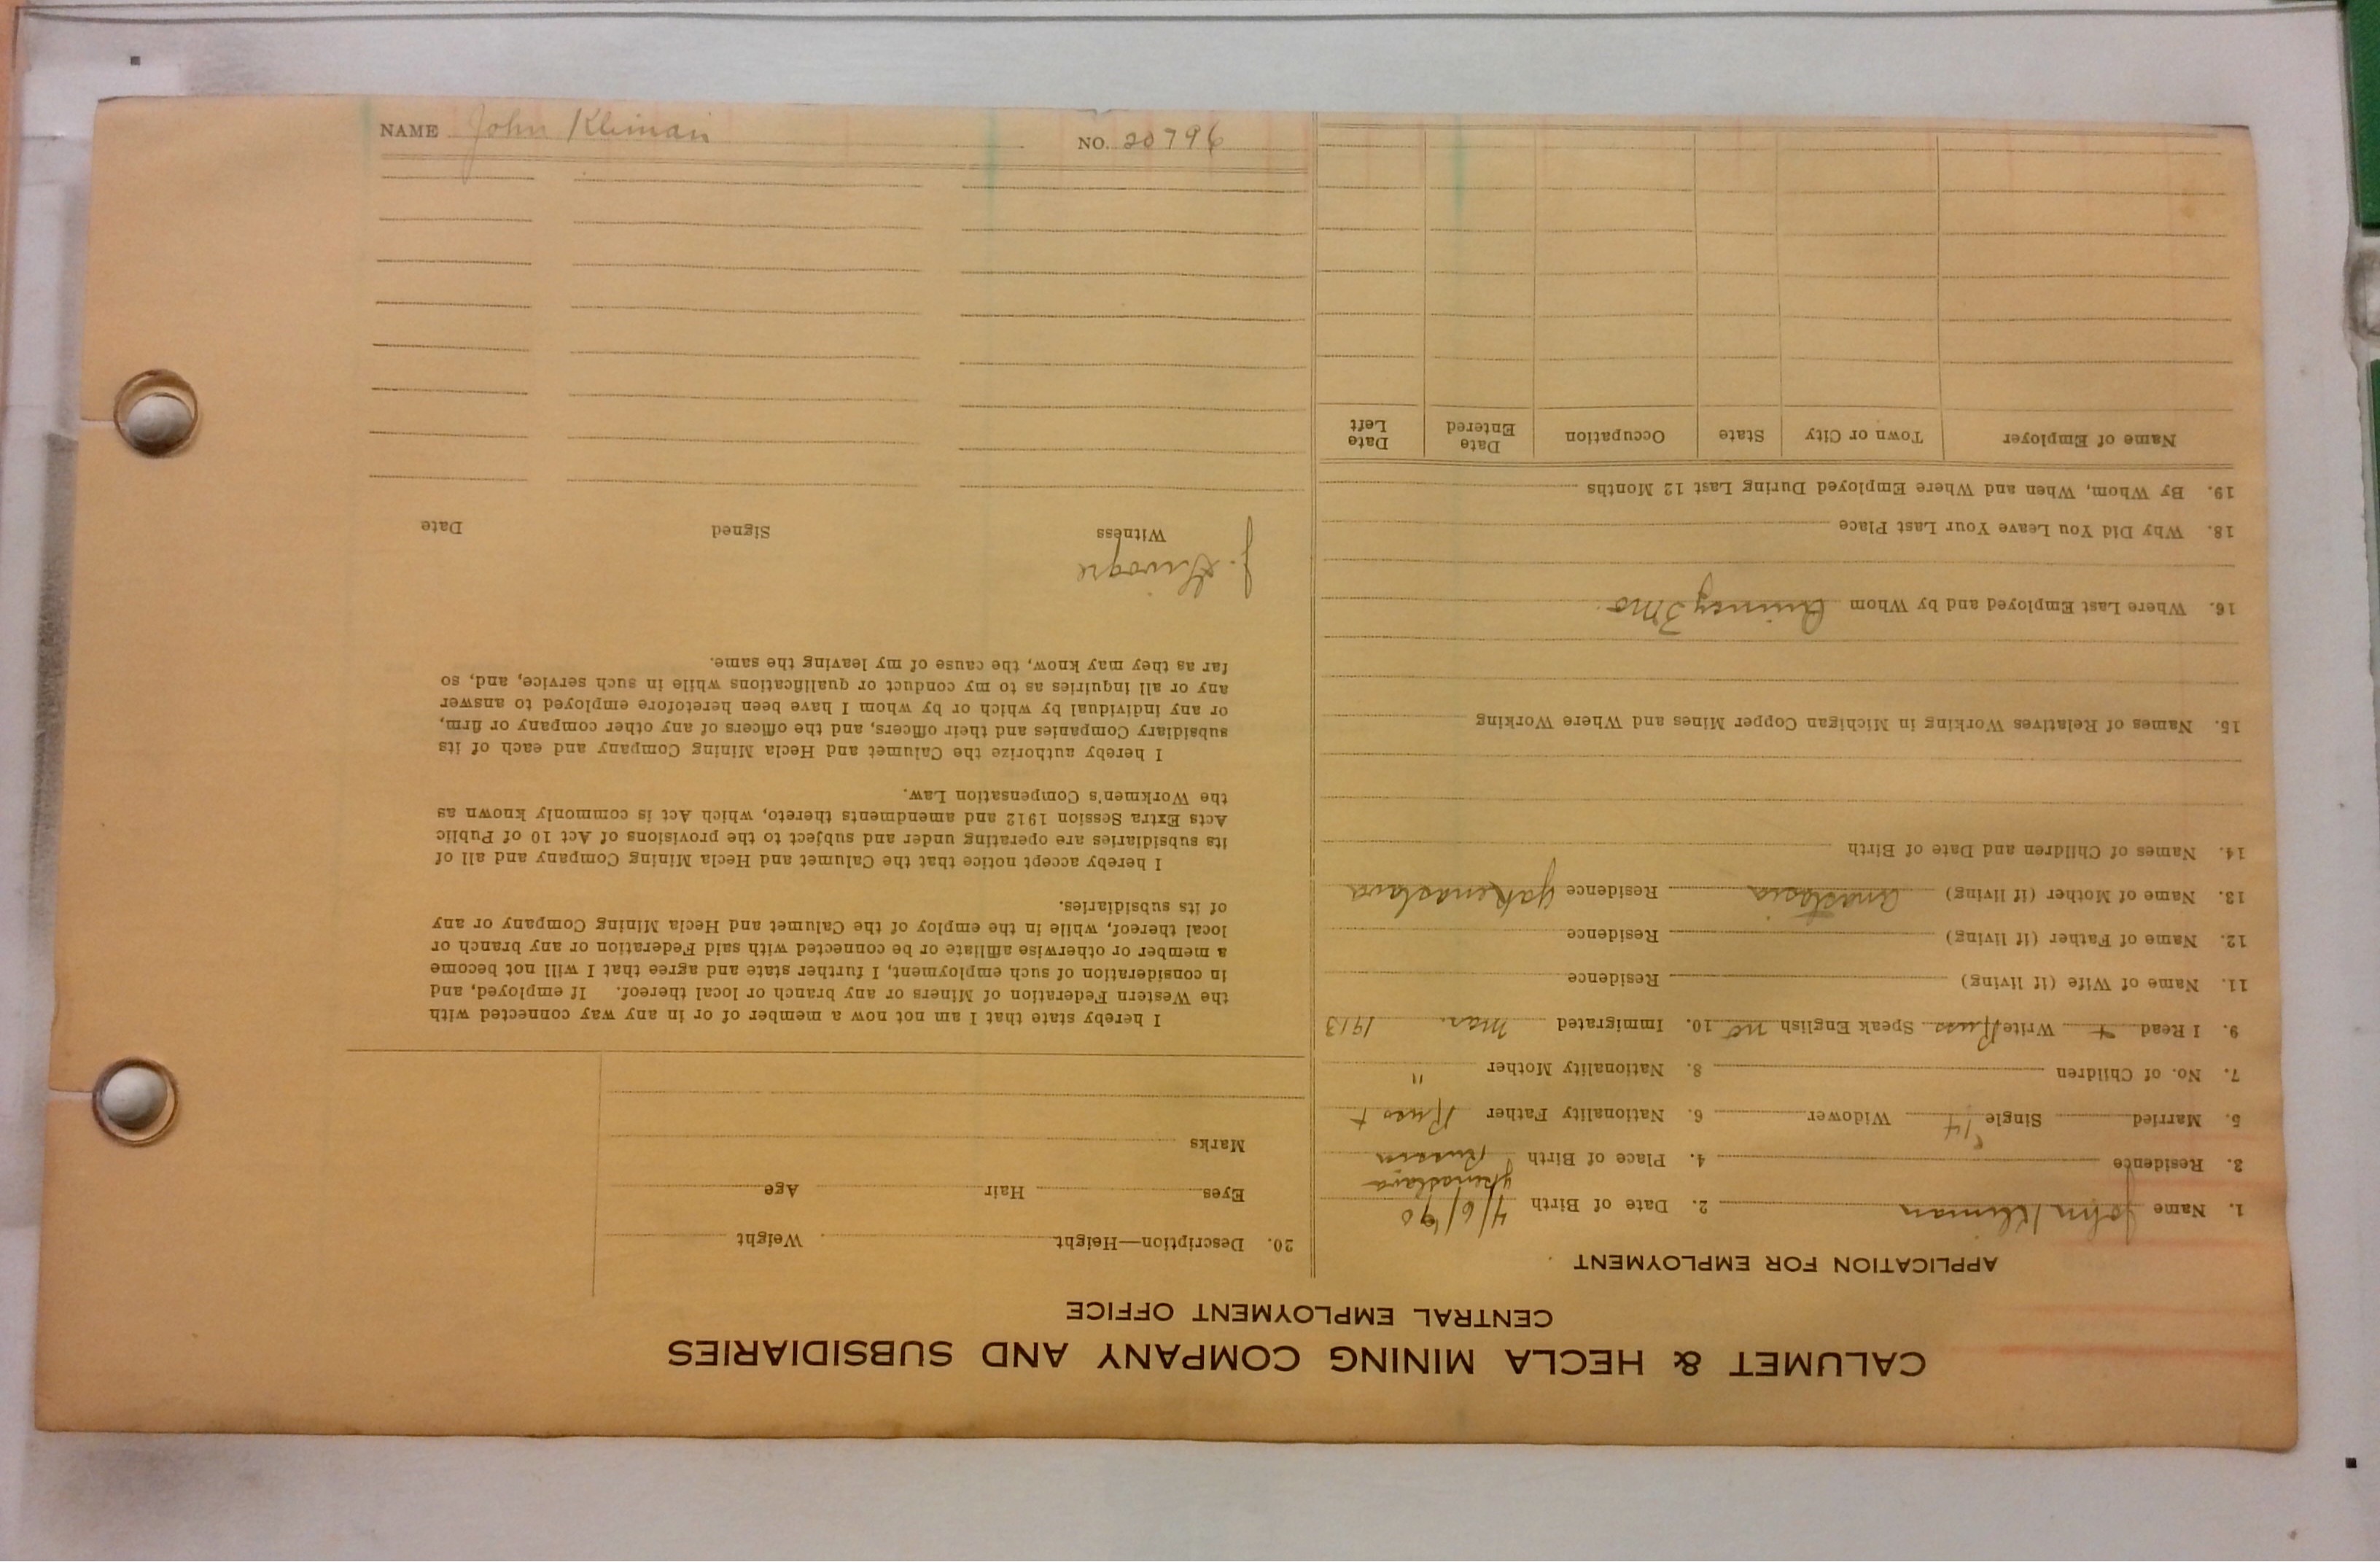 NAME John Kliman NO. 20796
CALUMET & HECLA MINING COMPANY AND SUBSIDIARIES
CENTRAL EMPLOYMENT OFFICE
APPLICATION FOR EMPLOYMENT
1. Name John Kliman 2. Date of Birth 4/6/90
3. Residence 4. Place of Birth Russia
5. Married Single Widower 6. Nationality Father Russ +
7. No. of Children 8. Nationality Mother "
9. I Read + Write Russ Speak English no 10. Immigrated Mar. 1913
11. Name of Wife (if living) Residence
12. Name of Father (if living) Residence
13. Name of Mother (if living) Anastasia Residence
14. Names of Children and Date of Birth
15. Names of Relatives Working in Michigan Copper Mines and Where Working
16. Where Last Employed and by Whom Quincy 3 mo
18. Why Did You Leave Your Last Place
19. By Whom, When and Where Employed During Last 12 Months
Name of Employer Town or City State Occupation Date Entered Date Left
20. Description—Height Weight
Eyes Hair Age
Marks
I hereby state that I am not now a member of or in any way connected with
the Western Federation of Miners or any branch or local thereof. If employed, and
in consideration of such employment, I further state and agree that I will not become
a member or otherwise affiliate or be connected with said Federation or any branch or
local thereof, while in the employ of the Calumet and Hecla Mining Company or any
of its subsidiaries.
I hereby accept notice that the Calumet and Hecla Mining Company and all of
its subsidiaries are operating under and subject to the provisions of Act 10 of Public
Acts Extra Session 1912 and amendments thereto, which Act is commonly known as
the Workmen's Compensation Law.
I hereby authorize the Calumet and Hecla Mining Company and each of its
subsidiary Companies and their officers, and the officers of any other company or firm,
or any individual by which or by whom I have been heretofore employed to answer
any or all inquiries as to my conduct or qualifications while in such service, and, so
far as they may know, the cause of my leaving the same.
J.
Witness Signed Date